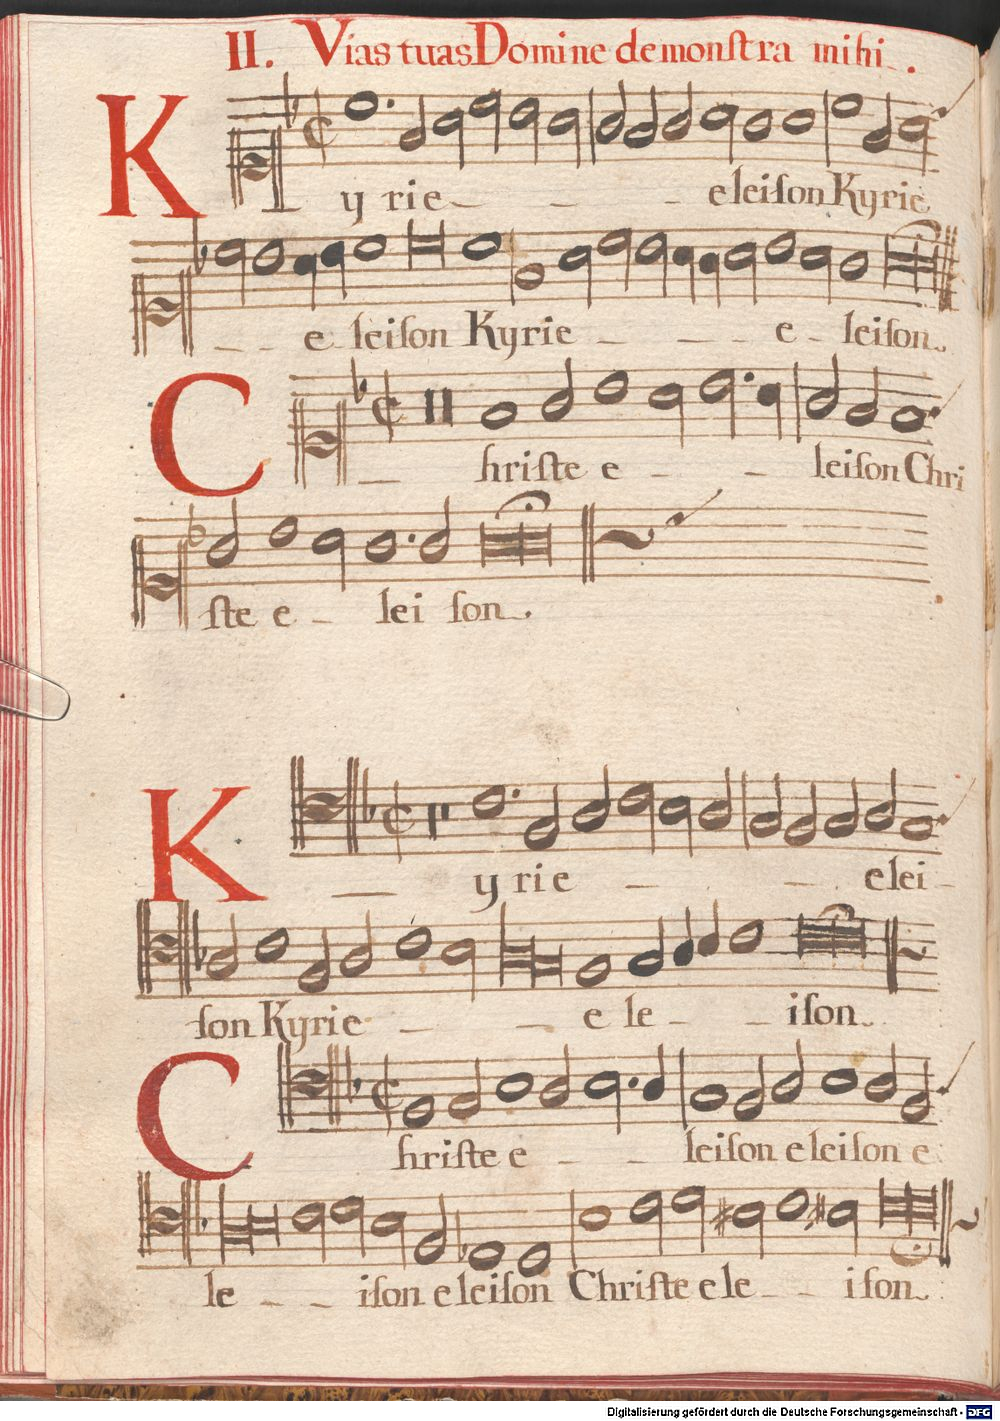 II. Vias tuas Domine demonſtra mihi.
K
y rie eleiſon Kyrie
e leiſon Kyrie e leiſon
C
hriſte e leiſon Chri
ſte e lei ſon
K
y rie elei
ſon Kyrie e le iſon
C
hriſte e leiſon eleiſon e
le iſon eleiſon Chriſte ele iſon
Digitalisierung gefördert durch die Deutsche Forschungsgemeinschaft - DFG